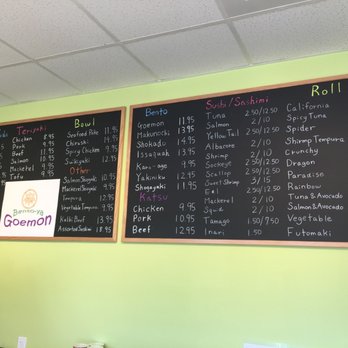 Teriyaki
Chicken 8.95
Pork 9.95
Beef 11.95
Salmon 10.95
Mackerel
Tofu
Bowl
Seafood Poke 11.95
Chirashi 14.95
Spicy Chicken 9.95
Sukiyaki 12.95
Other
Salmon Shioyaki 10.95
Mackerel Shioyaki
Tempura 12.95
Vegetable Tempura 9.95
Kalbi Beef 13.95
Assorted Sashimi 18.95
Goemon
Bento
Goemon 11.95
Makunochi 13.95
Shokado 14.95
Issaquah 14.95
Kara-age 9.95
Yakiniku 12.95
Shogayaki 11.95
Katsu
Chicken 9.95
Pork 10.95
Beef 12.95
Sushi/Sashimi
Tuna 2.50/12.50
Salmon 2/10
Yellow Tail 2.50/12.50
Albacore 2/10
Shrimp 2/10
Sockeye 2.50/12.50
Scallop 2.50/12.50
Sweet Shrimp 3/15
Eel 2.50/12.50
Mackerel 2/10
Squid 2/10
Tamago 1.50/7.50
Inari 1.50
Roll
California
Spicy Tuna
Spider
Shrimp Tempura
Crunchy
Dragon
Paradise
Rainbow
Tuna & Avocado
Salmon & Avocado
Vegetable
Futomaki